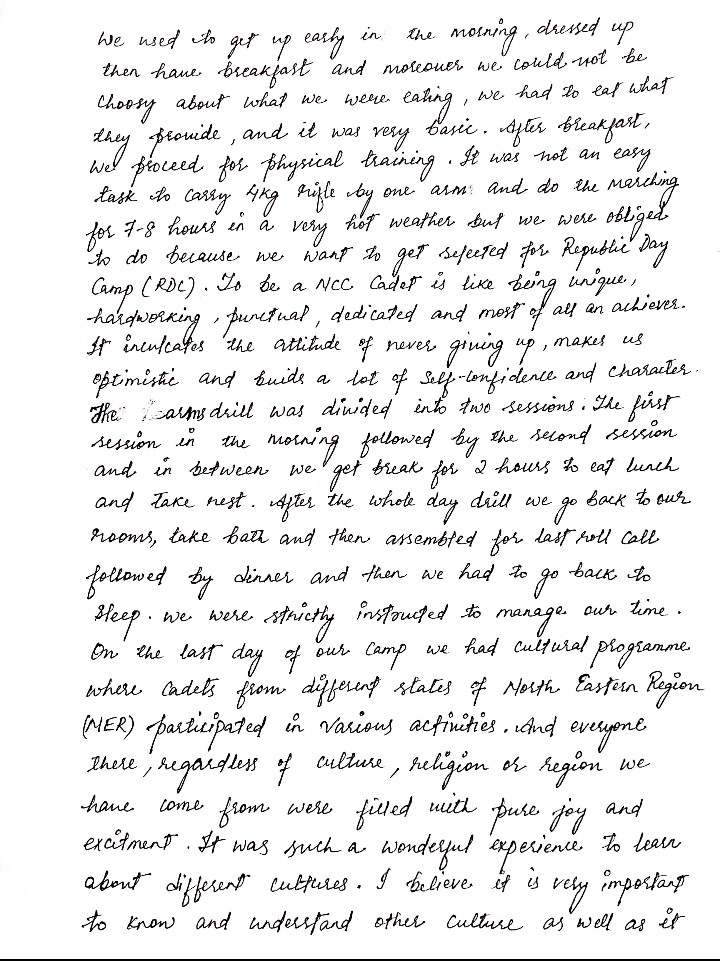 We used to get up early in the morning, dressed up
then have breakfast and moreover we could not be
choosy about what we were eating, we had to eat what
they provide, and it was very basic. After breakfast,
we proceed for physical training. It was not an easy
task to carry 4kg rifle by one arm and do the marching
for 7-8 hours in a very hot weather but we were obliged
to do because we want to get selected for Republic Day
Camp (RDC). To be a NCC Cadet is like being unique,
hardworking, punctual, dedicated and most of all an achiever.
It inculcates the attitude of never giving up, makes us
optimistic and buids a lot of self-confidence and character.
The arms drill was divided into two sessions. The first
session in the morning followed by the second session
and in between we get break for 2 hours to eat lunch
and take rest. After the whole day drill we go back to our
rooms, take bath and then assembled for last roll call
followed by dinner and then we had to go back to
sleep. we were strictly instructed to manage our time.
On the last day of our camp we had cultural programme
where cadets from different states of North Eastern Region
(NER) participated in various activities. And everyone
there, regardless of culture, religion or region we
have come from were filled with pure joy and
excitment. It was such a wonderful experience to learn
about different cultures. I believe it is very important
to know and understand other culture as well as it